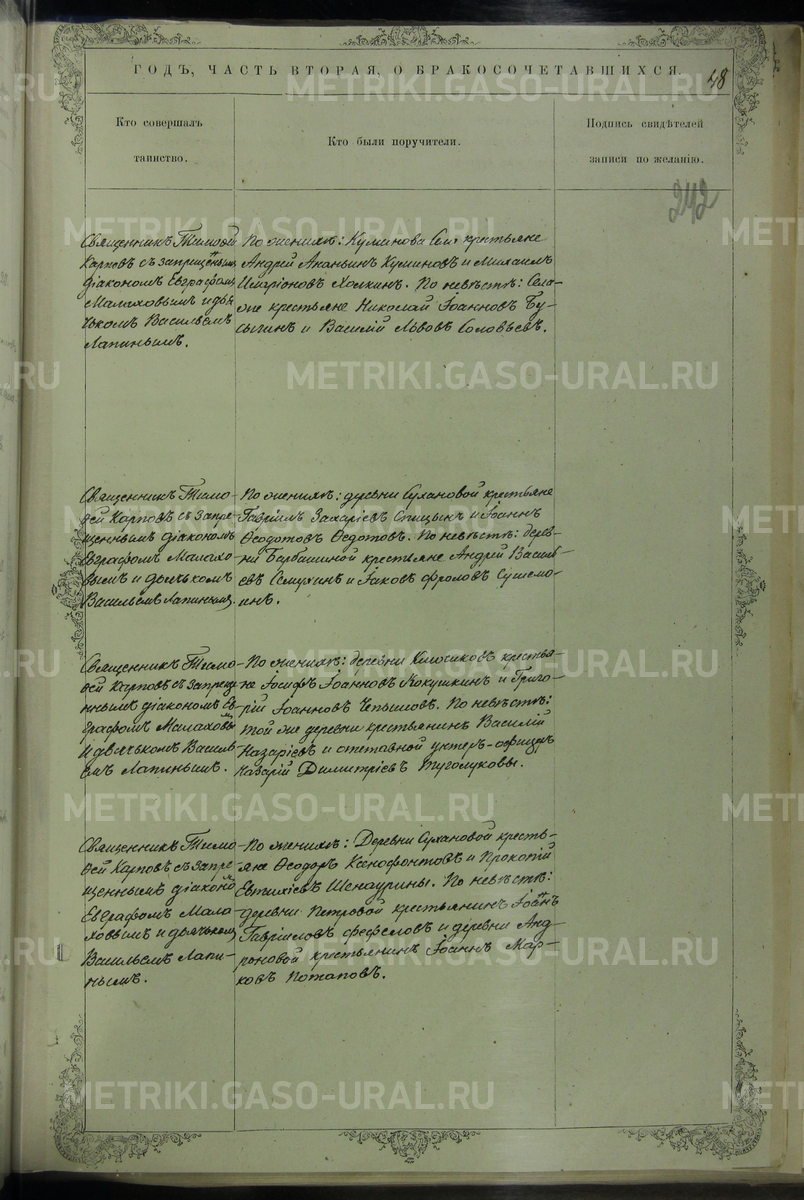 ГОДЪ, ЧАСТЬ ВТОРАЯ, О БРАКОСОЧЕТАВШИХСЯ.
48
Кто совершалъ
таинство.
Кто были поручители.
Подпись свидѣтелей
записи по желанію.
242
Священникъ Тимоѳей
Карповъ съ запрещеннымъ
діакономъ Евграфомъ
Малаховымъ и дья-
чькомъ Васильемъ
Лапинымъ.
По женихѣ: Куминова Сел. крестьяне
Андрей Ананьинъ Куминовъ и Михаилъ
Холкинъ. По невѣстѣ: Села
же крестьяне Николай Іоанновъ Бу-
сыгинъ и Василій Львовъ Соловьевъ.
Священникъ Тимо-
ѳей Карповъ съ запре-
щеннымъ діакономъ
Евграфомъ Малахо-
вымъ и дьячькомъ
Васильемъ Лапинымъ.
По женихѣ: деревни Сухановой крестьяне
Гавріилъ Захаріевъ Спицынъ и Іоаннъ
Ѳеодотовъ Ѳедотовъ. По невѣстѣ: дерев-
ни Барбашиной крестьяне Андрей Василь-
евъ Семухинъ и Іаковъ Фроловъ
инъ.
Священникъ Тимо-
ѳей Карповъ съ запрещ-
еннымъ діакономъ Ев-
графомъ Малаховы
и дьячькомъ Василь
емъ Лапинымъ.
По женихѣ: деревни крестья-
не Іосифъ Іоанновъ Кокушкинъ и Григо-
рій Іоанновъ Чепшиловъ. По невѣстѣ:
той же деревни крестьянинъ Василій
Назаріевъ и отставной унтеръ-офицеръ
Назарій Димитріевъ Туголуковы.
Священникъ Тимо
ѳей Карповъ съ запре-
щеннымъ діакономъ
Евграфомъ Мала-
ховымъ и дьячькомъ
Васильемъ Лапи-
нымъ.
По женихѣ: Деревни Сухановой кресть-
яне Ѳеодоръ Ксенофонтовъ и Прокопій
Евтихіевъ Шенаурины. По невѣстѣ:
деревни Петровой крестьянинъ Іоаннъ
Гавріиловъ Фефеловъ и деревни Анд-
роновой крестьянинъ Іоаннъ Мар-
ковъ Потаповъ.
METRIKI.GASO-URAL.RU